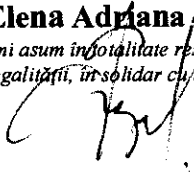 Elena Adriana
mi asum în totalitate re
egalității, în solidar cu